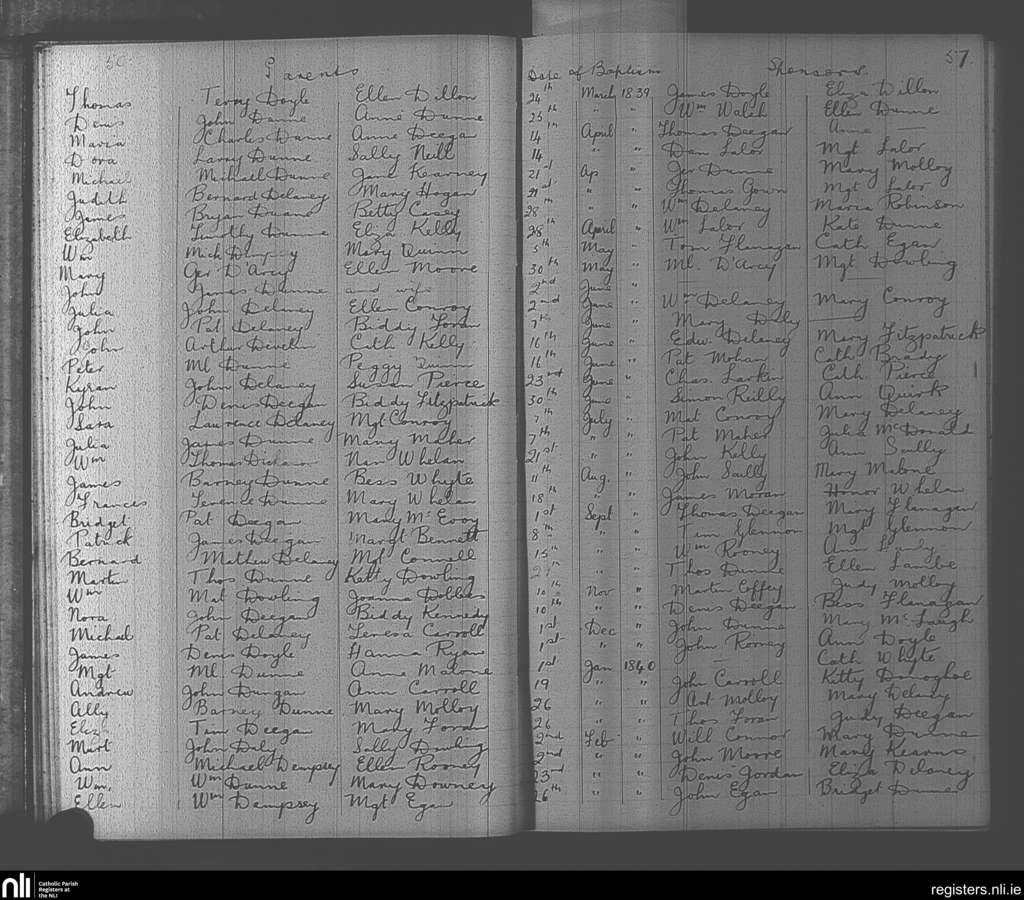 56
Parents
Thomas Terry Doyle Ellen Dillon
Denis John Dunne Anne Dunne
Maria Charles Dunne Anne Deegan
Dora Larry Dunne Sally Neill
Michael Michael Dunne Jane Kearney
Judith Bernard Delaney Mary Hogan
James Bryan Duane Betty Casey
Elizabeth Timothy Dunne Eliza Kelly
Wm Mich Dempsey Mary Quinn
Mary Ger D'Arcy Ellen Moore
John James Dunne and wife
Julia John Delaney Ellen Conroy
John Pat Delaney Biddy Foran
John Arthur Cath Kelly
Peter Ml Dunne Peggy Quinn
Kyran John Delaney Susan Pierce
John Denis Deegan Biddy Fitzpatrick
Sara Laurence Delaney Mgt Conroy
Julia James Dunne Mary Maher
Wm Thomas Nan Whelan
James Barney Dunne Bess Whyte
Frances Terence Dunne Mary Whelan
Bridget Pat Deegan Mary McEvoy
Patrick James Deegan Margt Bennett
Bernard Mathew Delaney Mgt Connell
Martin Thos Dunne Katty Dowling
Wm Mat Dowling Joanna Dobbs
Nora John Deegan Biddy Kennedy
Michael Pat Delaney Teresa Carroll
James Denis Doyle Hanna Ryan
Mgt Ml Dunne Anne Malone
Andrew John Dungan Ann Carroll
Ally Barney Dunne Mary Molloy
Eliz Tim Deegan Mary Foran
Mart John Daly Sally Dowling
Ann Michael Dempsey Ellen Rooney
Wm. Wm Dunne Mary Downey
Ellen Wm Dempsey Mgt Egan
57
Date of Baptism Sponsors
24th March 1839 James Doyle Eliza Dillon
25th " " Wm Walsh Ellen Dunne
14th April " Thomas Deegan Anne —
14 " " Dan Lalor Mgt Lalor
21st Ap " Jer Dunne Mary Molloy
21st " " Thomas Gown Mgt Lalor
28th " " Wm Delaney Maria Robinson
28th April " Wm Lalor Kate Dunne
5th May " Tom Flanagan Cath Egan
30th May " Ml. D'Arcy Mgt. Dowling
2nd June " — —
2nd June " Wm Delaney Mary Conroy
7th June " Mary Daly —
16th June " Edw. Delaney Mary Fitzpatrick
16th June " Pat Mohan Cath Brady
23rd June " Chas. Larkin Cath Pierce
30th June " Simon Reilly Ann Quirk
7th July " Mat Conroy Mary Delaney
7th " " Pat Maher Julia McDonald
21st " " John Kelly Ann Scully
11th Aug. " John Scully Mary Malone
18th " " James Moran Honor Whelan
1st Sept " Thomas Deegan Mary Flanagan
8th " " Tim Glennon Mgt Glennon
15th " " Wm Rooney Ann
th " " Thos Dunne Ellen Lambe
10th Nov " Martin Coffey Judy Molloy
10th " " Denis Deegan Bess Flanagan
1st Dec " John Dunne Mary
1st " " John Rooney Ann Doyle
1st Jan 1840 — Cath Whyte
19 " " John Carroll Kitty Donoghoe
26 " " Cat Molloy Mary Delany
26 " " Thos Foran Judy Deegan
2nd Feb " Will Connor Mary Dunne
2nd " " John Moore Mary Kearns
23rd " " Denis Jordan Eliza Delaney
26th " " John Egan Bridget Dunne
nli Catholic Parish Registers at the NLI
registers.nli.ie